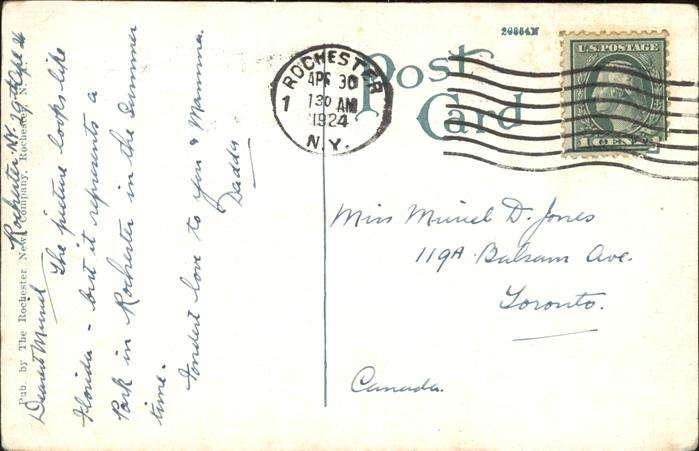 20854N
Post
Card
U.S. POSTAGE
1 CENT
ROCHESTER
APR 30
1 30 AM
1924
N.Y.
1
Pub. by The Rochester News Company, Rochester, N.
Rochester N.Y. 29th Apl 24
Dearest Muriel
The picture looks like
Florida - but it represents a
Park in Rochester in the Summer
time.
Fondest love to you & Mamma.
Daddy
Miss Muriel D. Jones
119A Balsam Ave.
Toronto.
Canada.